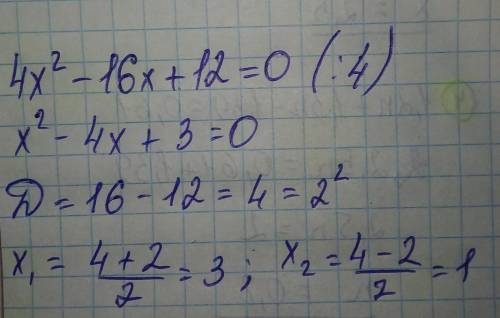 4x² - 16x + 12 = 0 (:4)
x² - 4x + 3 = 0
D = 16 - 12 = 4 = 2²
x₁ = (4+2)/2 = 3; x₂ = (4-2)/2 = 1